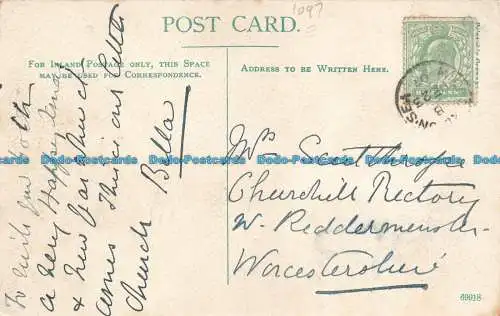 POST CARD.
1097
FOR INLAND POSTAGE ONLY, THIS SPACE
MAY BE USED FOR CORRESPONDENCE.
ADDRESS TO BE WRITTEN HERE.
To wish you both
a very Happy
& New Year much
This is our
Church Bella
Churchill Rectory
Nr Kidderminster
Worcestershire
Dodo-Postcards Dodo-Postcards Dodo-Postcards Dodo-Postcards Dodo-Postcards
69918